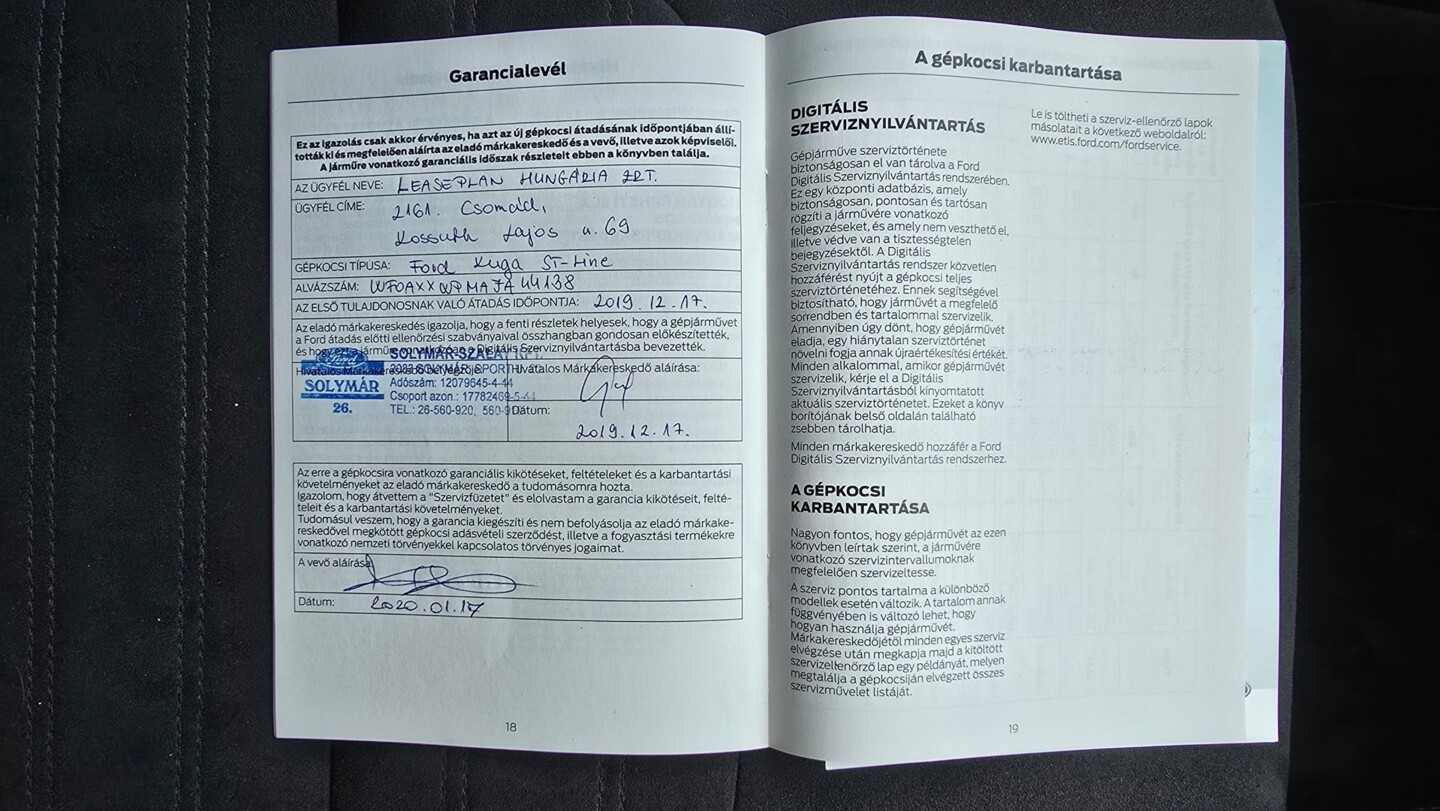 Garancialevél
Ez az igazolás csak akkor érvényes, ha azt az új gépkocsi átadásának időpontjában állí-
tották ki és megfelelően aláírta az eladó márkakereskedő és a vevő, illetve azok képviselői.
A járműre vonatkozó garanciális időszak részleteit ebben a könyvben találja.
AZ ÜGYFÉL NEVE: LEASEPLAN HUNGÁRIA ZRT.
ÜGYFÉL CÍME: 2161. Csomád,
Kossuth Lajos u. 69
GÉPKOCSI TÍPUSA: Ford Kuga ST-Line
ALVÁZSZÁM: WF0AXXWPMAJA44138
AZ ELSŐ TULAJDONOSNAK VALÓ ÁTADÁS IDŐPONTJA: 2019.12.17.
Az eladó márkakereskedés igazolja, hogy a fenti részletek helyesek, hogy a gépjárművet
a Ford átadás előtti ellenőrzési szabványaival összhangban gondosan előkészítették,
és hogy ezt a járműre vonatkozóan a Digitális Szerviznyilvántartásba bevezették.
Hivatalos Márkakereskedő bélyegzője:
Hivatalos Márkakereskedő aláírása:
Ford
SOLYMÁR
26.
SOLYMÁR-SZALAY KFT.
2083 SOLYMÁR, SPORT U.
Adószám: 12079645-4-44
Csoport azon.: 17782469-5-44
TEL.: 26-560-920, 560-9
Dátum:
2019.12.17.
Az erre a gépkocsira vonatkozó garanciális kikötéseket, feltételeket és a karbantartási
követelményeket az eladó márkakereskedő a tudomásomra hozta.
Igazolom, hogy átvettem a "Szervizfüzetet" és elolvastam a garancia kikötéseit, felté-
teleit és a karbantartási követelményeket.
Tudomásul veszem, hogy a garancia kiegészíti és nem befolyásolja az eladó márkake-
reskedővel megkötött gépkocsi adásvételi szerződést, illetve a fogyasztási termékekre
vonatkozó nemzeti törvényekkel kapcsolatos törvényes jogaimat.
A vevő aláírása:
Dátum: 2020.01.17
18
A gépkocsi karbantartása
DIGITÁLIS
SZERVIZNYILVÁNTARTÁS
Gépjárműve szerviztörténete
biztonságosan el van tárolva a Ford
Digitális Szerviznyilvántartás rendszerében.
Ez egy központi adatbázis, amely
biztonságosan, pontosan és tartósan
rögzíti a járművére vonatkozó
feljegyzéseket, és amely nem veszthető el,
illetve védve van a tisztességtelen
bejegyzésektől. A Digitális
Szerviznyilvántartás rendszer közvetlen
hozzáférést nyújt a gépkocsi teljes
szerviztörténetéhez. Ennek segítségével
biztosítható, hogy járművét a megfelelő
sorrendben és tartalommal szervizelik.
Amennyiben úgy dönt, hogy gépjárművét
eladja, egy hiánytalan szerviztörténet
növelni fogja annak újraértékesítési értékét.
Minden alkalommal, amikor gépjárművét
szervizelik, kérje el a Digitális
Szerviznyilvántartásból kinyomtatott
aktuális szerviztörténetet. Ezeket a könyv
borítójának belső oldalán található
zsebben tárolhatja.
Minden márkakereskedő hozzáfér a Ford
Digitális Szerviznyilvántartás rendszerhez.
A GÉPKOCSI
KARBANTARTÁSA
Nagyon fontos, hogy gépjárművét az ezen
könyvben leírtak szerint, a járművére
vonatkozó szervizintervallumoknak
megfelelően szervizeltesse.
A szerviz pontos tartalma a különböző
modellek esetén változik. A tartalom annak
függvényében is változó lehet, hogy
hogyan használja gépjárművét.
Márkakereskedőjétől minden egyes szerviz
elvégzése után megkapja majd a kitöltött
szervizellenőrző lap egy példányát, melyen
megtalálja a gépkocsiján elvégzett összes
szervizművelet listáját.
Le is töltheti a szerviz-ellenőrző lapok
másolatait a következő weboldalról:
www.etis.ford.com/fordservice.
19